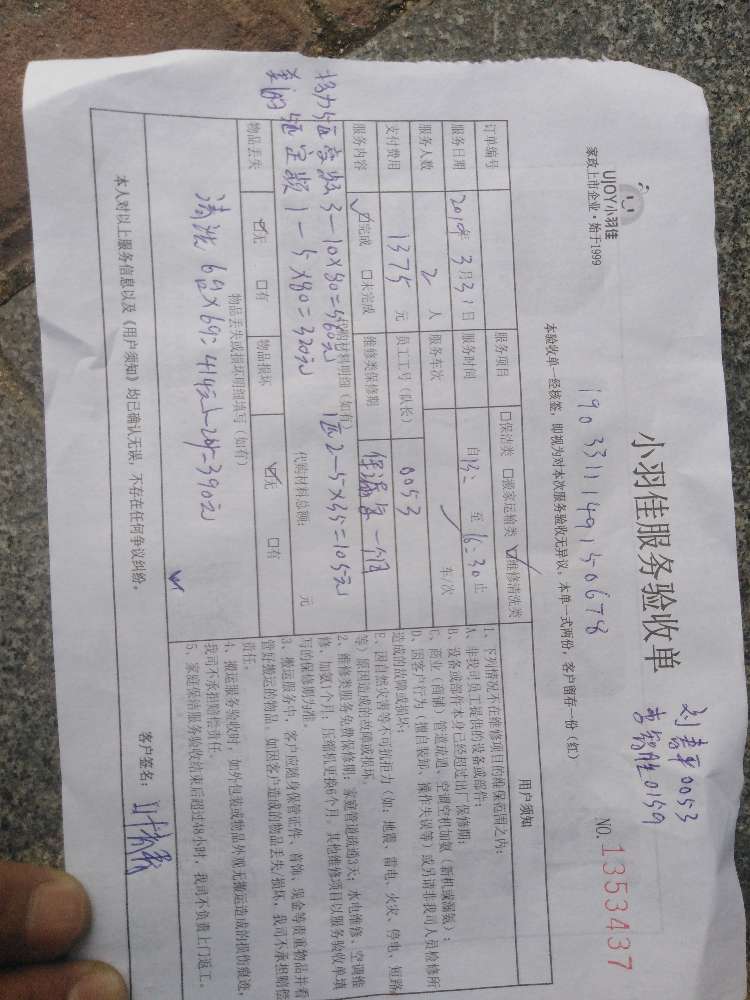 UJOY小羽佳
家政上市企业·始于1999
小羽佳服务验收单
刘春平0053
李锦胜0159
190331149150678
NO.1353437
本验收单一经核签，即视为对本次服务验收无异议，本单一式两份，客户留存一份（红）
订单编号
服务项目 □保洁类 □搬家运输类 ☑维修清洗类
用户须知
服务日期 2019年3月31日 服务时间 自13: 至16:30止
服务人数 2人 服务车次 / 车/次
支付费用 1375元 员工工号(队长) 0053
服务内容 ☑完成 □未完成 维修类保修期 保漏氟一个月
代购材料明细(如有)
格力5匹变频3-10×80=560元 1匹2-5×35=105元
美的5匹定频1-5×80=320元
代购材料总额： 元
物品丢失 ☑无 □有 物品损坏 ☑无 □有
物品丢失或损坏明细填写(如有)
清洗6台×69=414元-24=390元
1、下列情况不在维修项目的维保范围之内：
A、非我司员工提供的设备或部件；
B、设备或部件本身已经超过出厂保修期；
C、商业（商铺）管道疏通、空调空机加氨（新机或漏氨）；
D、因客户行为（擅自装卸、操作失误等）或另请非我司人员检修所
造成的故障或损坏；
E、因自然灾害等不可抗拒力（如：地震、雷电、火灾、停电、短路
等）原因造成的故障或损坏。
2、维修类服务免费保修期：家庭管道疏通3天；水电维修、空调维
修、加氨1个月；压缩机更换6个月，其他维修项目以服务验收单填
写的保修期为准。
3、搬运服务中，客户应随身保管证件、首饰、现金等贵重物品并看
管好搬运的物品。如因客户造成的物品丢失/损坏，我司不承担赔偿
责任。
4、搬运服务验收时，如外包装或物品外观无搬运造成的损伤痕迹，
我司不承担赔偿责任。
5、家庭保洁服务验收结束后超过48小时，我司不负责上门返工。
本人对以上服务信息以及《用户须知》均已确认无误，不存在任何争议纠纷。
客户签名：